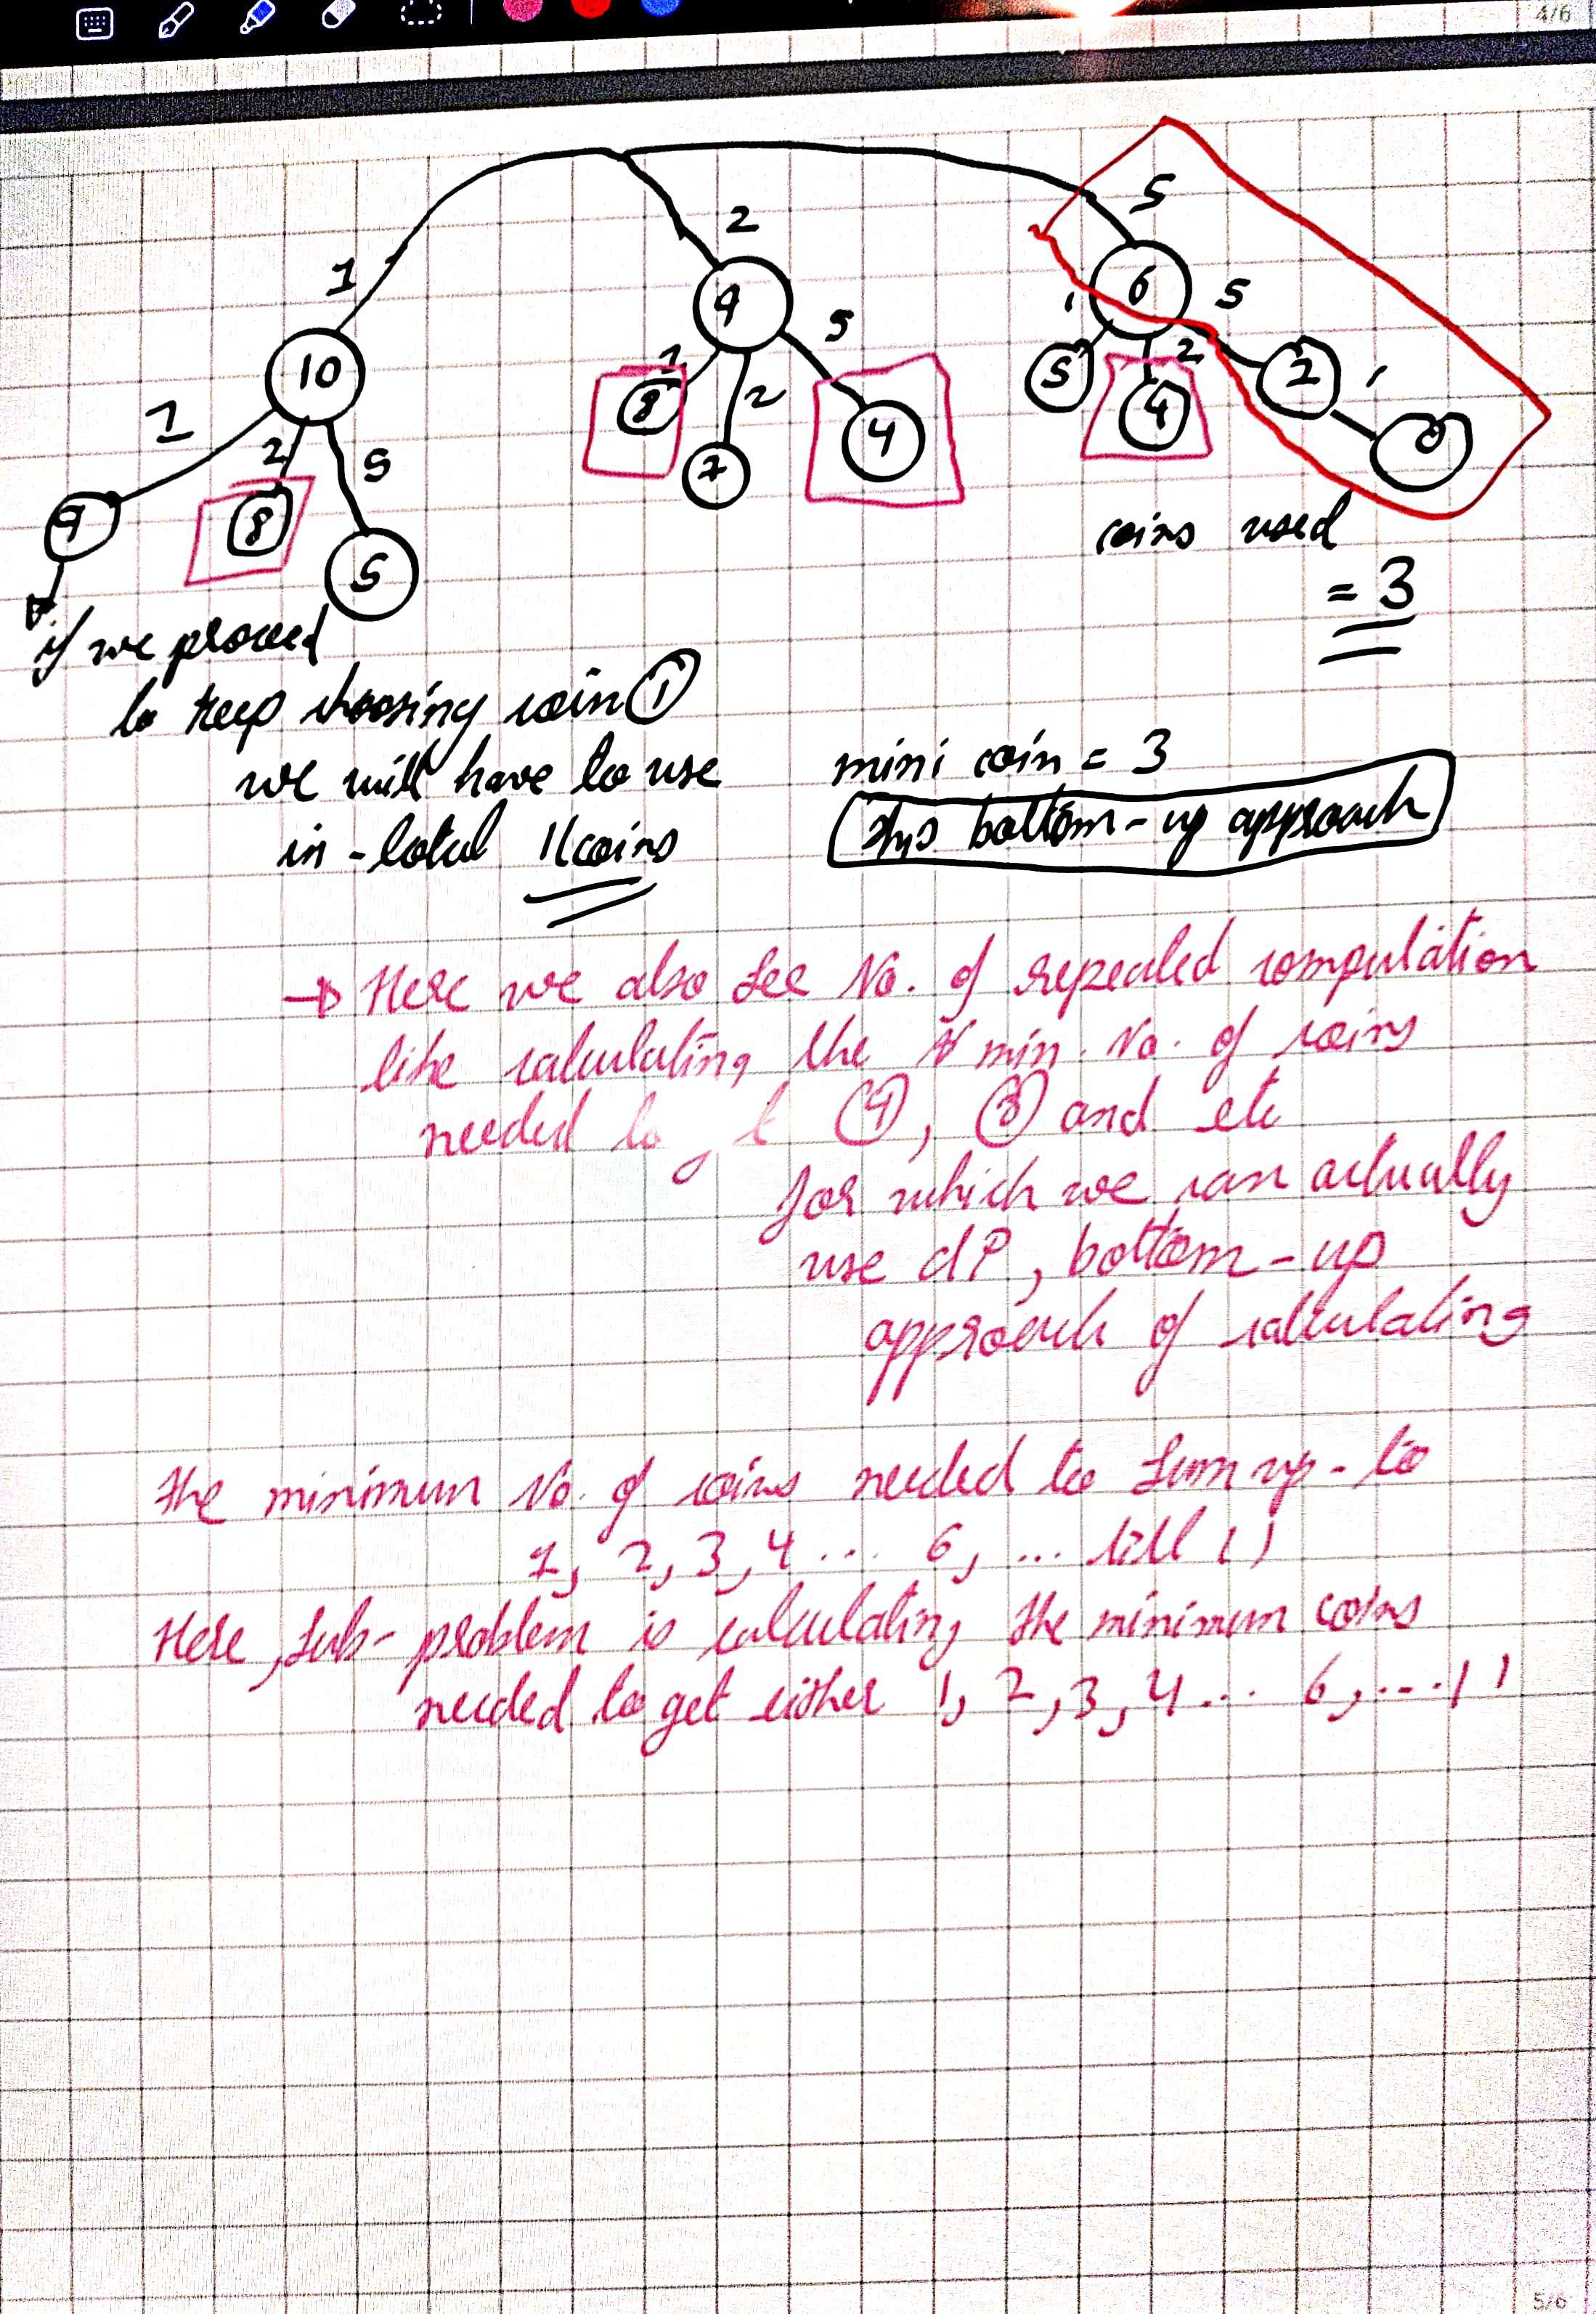 4/6
5
2
1
6
5
9
1
2
5
10
5
1
2
5
2
1
8
7
4
4
0
1
2
5
9
8
5
coins used
= 3
if we proceed
to keep choosing coin 1
we will have to use
in-total 11 coins
mini coin = 3
this bottom-up approach
→ Here we also see No. of repeated computation
like calculating the min. No. of coins
needed to 4, 8 and etc
for which we can actually
use dP, bottom-up
approach of calculating
the minimum No. of coins needed to sum up-to
1, 2, 3, 4 ... 6, ... till 11
Here, sub-problem is calculating the minimum coins
needed to get either 1, 2, 3, 4 ... 6, ... 11
5/6